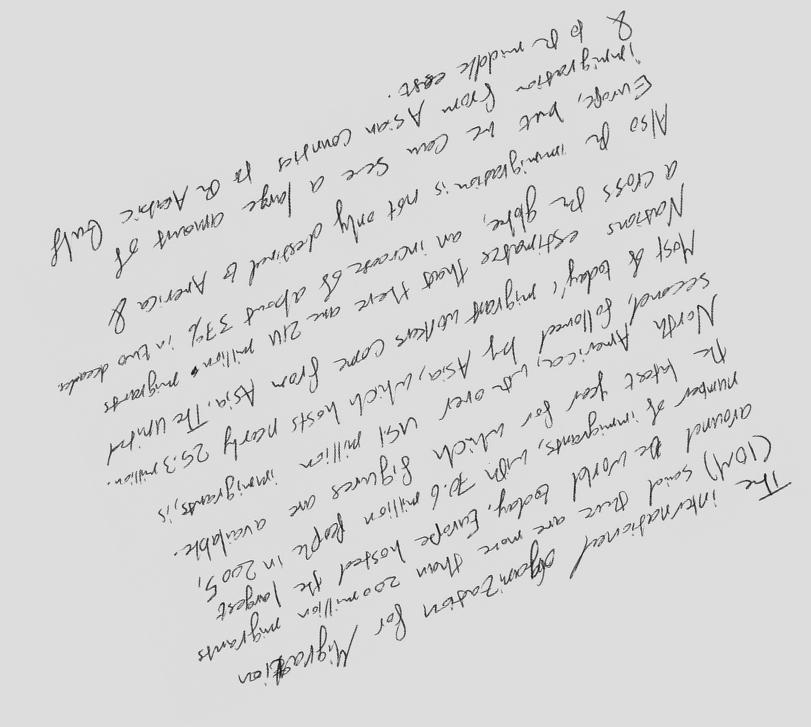 The international organization for Migration
(IOM) said there are more than 200 million migrants
around the world today. Europe hosted the largest
number of immigrants, with 70.6 million people in 2005,
the latest year for which figures are available.
North America, with over 45.1 million immigrants, is
second, followed by Asia, which hosts nearly 25.3 million.
Most of today's migrant workers come from Asia. The United
Nations estimates that there are 214 million migrants
across the globe, an increase of about 37% in two decades.
Also the immigration is not only destined to America &
Europe, but we can see a large amount of
immigration from Asian countries to the Arabic Gulf
& to the middle east.